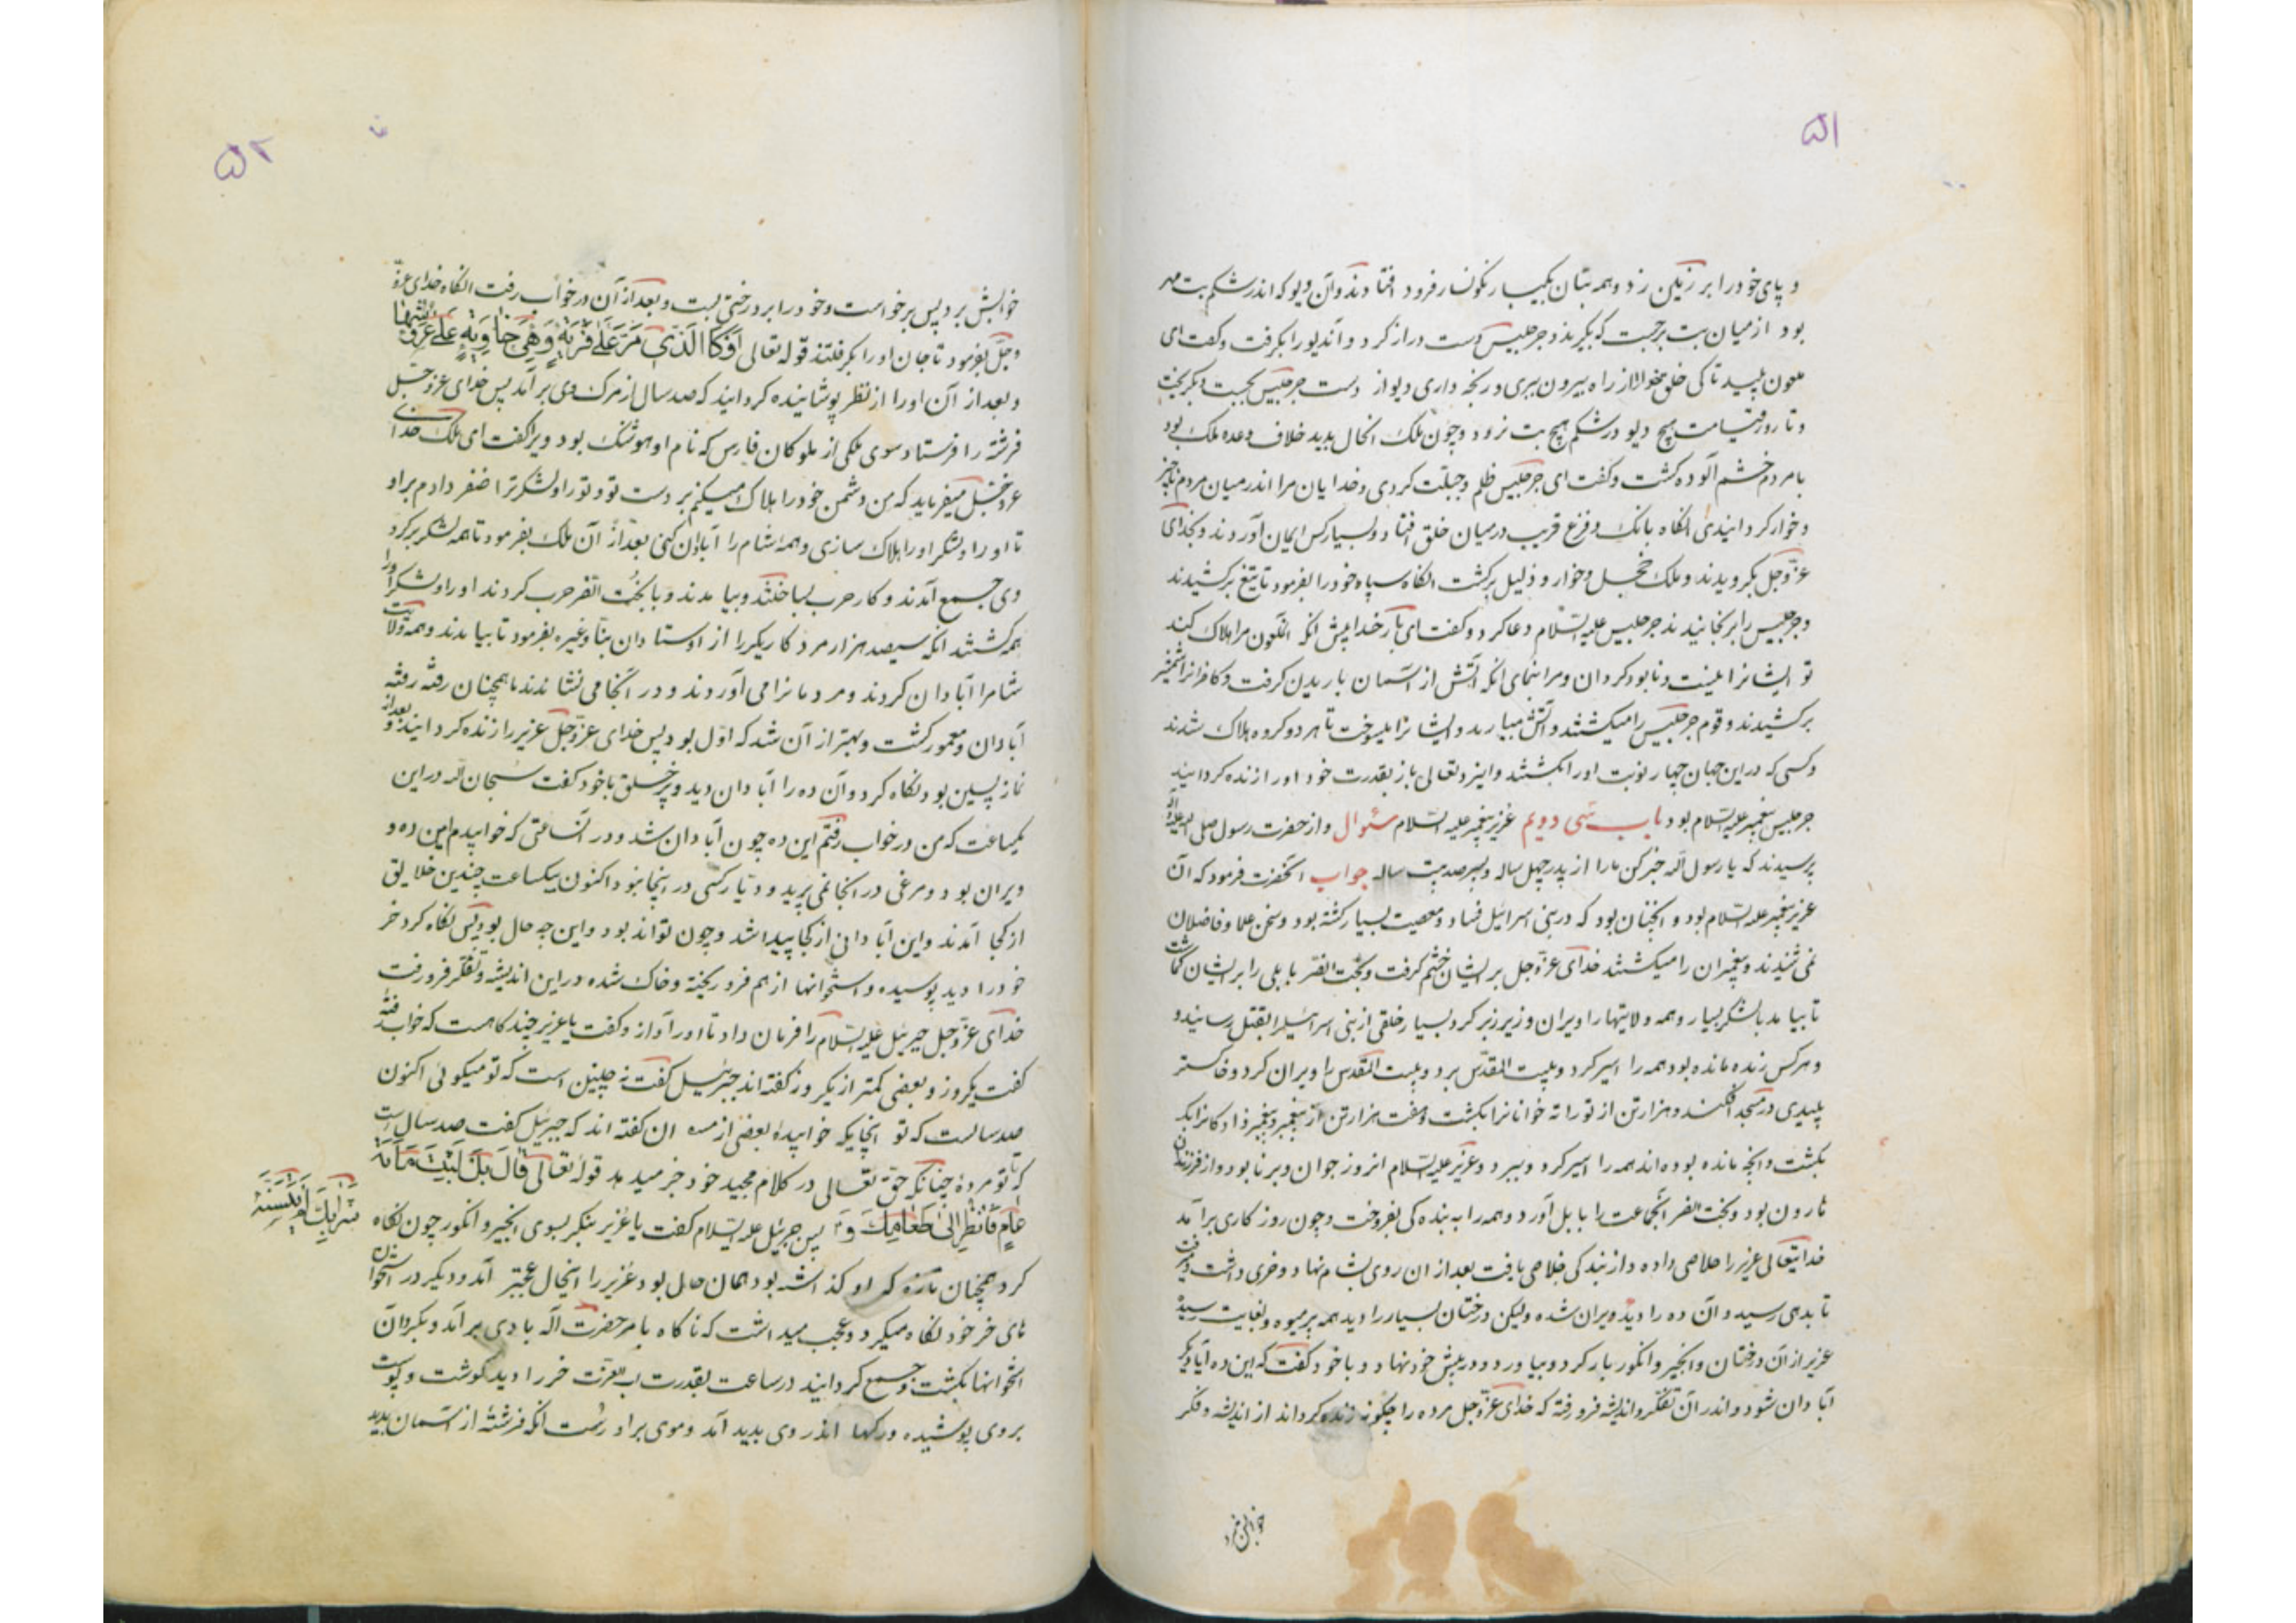 ۵۱
و پای خود را بر زمین زد و همه بتان بیکبار نکونسار فرود افتادند و آن دیو که اندر شکم بت مهر
بود از میان بت برجست که بگریزد جرجیس دست دراز کرد و آندیو را بکرفت و کفت ای
ملعون پلید تا کی خلق را از راه بیرون بری و رنجه داری دیو از دست جرجیس بجست و بکریخت
و تا روز قیامت هیچ دیو در شکم هیچ بت نرود و چون ملک انحال بدید خلاف وعده ملک بود
با مردم خشم آلوده کشت و کفت ای جرجیس ظلم و حیلت کردی و خدایان مرا اندر میان مردم ناچیز
و خوار کردانیدی انکاه بانک و فزع قریب در میان خلق افتاد و بسیار کس ایمان آوردند و بخدای
عزّوجل بکرویدند و ملک خجل و خوار و ذلیل برکشت انکاه سپاه خود را بفرمود تا تیغ برکشیدند
و جرجیس را برنجانیدند جرجیس علیه السّلام دعا کرد و کفت ای بار خدا پیش انکه انملعون مرا هلاک کند
تو ایشانرا نیست و نابود کردان و مرا بنمای انکه آتش از آسمان باریدن کرفت و کافرانرا شمشیر
برکشیدند و قوم جرجیس را میکشتند و آتش میبارید و ایشانرا میسوخت تا هر دو کروه هلاک شدند
و کسی که در این جهان چهار نوبت او را بکشتند و ایزد تعالی باز بقدرت خود او را زنده کردانید
جرجیس پیغمبر علیه السّلام بود باب سی دویم عزیر پیغمبر علیه السّلام سئوال و از حضرت رسول صلی الله علیه و آله
پرسیدند که یا رسول الله خبر کن ما را از پدر چهل ساله و پسر صد بیست ساله جواب انحضرت فرمود که آن
عزیر پیغمبر علیه السّلام بود و انچنان بود که در بنی اسرائیل فساد و معصیت بسیار کشته بود و سخن علما و فاضلان
نمی شنیدند و پیغمبران را میکشتند خدای عزّوجل بر ایشان خشم کرفت و بخت النصر بابلی را بر ایشان کماشت
تا بیامد با لشکر بسیار و همه ولایتها را ویران و زیر زبر کرد و بسیار خلقی از بنی اسرائیل را بقتل رسانید و
و هر کس زنده مانده بود همه را اسیر کرد و ببیت المقدّس برد و بیت المقدس را ویران کرد و خاکستر
پلیدی در مسجد افکند و هزار تن از توراته خوانانرا بکشت و هفت هزار تن از پیغمبر و پیغمبر زادکانرا بکـ
بکشت و انچه مانده بوده اند همه را اسیر کرد و ببرد و عزیر علیه السّلام انروز جوان و برنا بود و از فرزندان
هارون بود و بخت النصر انجماعت را ببابل آورد و همه را به بنده کی بفروخت و چون روز کاری برآمد
خدایتعالی عزیر را خلاصی داده و از بندکی خلاصی یافت بعد از ان روی بشام نهاد و خری داشت و میرفت
تا بدهی رسید و آن ده را دید ویران شده ولیکن درختان بسیار را دید همه پر میوه و بغایت رسیده
عزیر از آن درختان و انجیر و انکور بار کرد و بیاورد و در پیش خود نهاد و با خود کفت که این ده آیا دیکر
آبادان شود و اندر آن تفکّر و اندیشه فرو رفته که خدای عزّوجل مرده را چکونه زنده کرداند از اندیشه و فکر
خوابش ببرد
۵۲
خوابش برد پس برخواست و خود را بر درختی بست و بعد از آن در خواب رفت انکاه خدای عزّ
وجلّ بفرمود تا جان او را بکرفتند قوله تعالی اَوْ كَا الَّذي مَرَّ عَلٰی قَرْيَةٍ وَهِیَ خٰاوِيَةٌ عَلٰی عُرُوشِهٰا
و بعد از آن او را از نظر پوشانیده کردانید که صد سال از مرک وی برآمد پس خدای عزّوجل
فرشته را فرستاد سوی ملکی از ملوکان فارس که نام او هوشنک بود ویرا کفت ای ملک خدای
عزّوجل میفرماید که من دشمن خود را هلاک میکنم بر دست تو و تو را و لشکر ترا ضفر دادم بر او
تا او را و لشکر او را هلاک سازی و همهٔ شام را آبادان کنی بعد از آن ملک بفرمود تا همه لشکر بر کرد
وی جمع آمدند و کار حرب بساختند و بیامدند و با بخت النصر حرب کردند او را و لشکر او را
همه کشتند انکه سیصد هزار مرد کاریکر را از اوستادان بنّا و غیره بفرمود تا بیامدند و همه ولایت
شامرا آبادان کردند و مردمانرا می آوردند و در آنجا می نشاندند تا همچنان رفته رفته
آبادان و معمور کشت و بهتر از آن شد که اوّل بود پس خدای عزّوجل عزیر را زنده کردانید و بعد از
نماز پسین بود نکاه کرد و آن ده را آبادان دید و پر خلق با خود کفت سبحان الله در این
یکساعت که من در خواب رفتم این ده چون آبادان شد و در آنساعتی که خوابیدم این ده و
ویران بود و مرغی در انجا نمی پرید و دیّار کسی در اینجا نبود اکنون بیکساعت چندین خلایق
از کجا آمدند و این آبادانی از کجا پیدا شد و چون تواند بود و این چه حال بود پس نکاه کرد خر
خود را دید پوسیده و استخوانها از هم فرو ریخته و خاک شده در این اندیشه و تفکّر فرو رفت
خدای عزّوجل جبرئیل علیه السّلام را فرمان داد تا او را آواز و کفت یا عزیر چند کاهست که خواب رفتهٔ
کفت یکروز و بعضی کمتر از یکروز کفته اند جبرئیل کفت نه چنین است که تو میکوئی اکنون
صد سالست که تو اینجایکه خوابیدهٔ بعضی از مسه ان کفته اند که جبرئیل کفت صد سال است
که تا تو مردهٔ چنانکه حقّ تعالی در کلام مجید خود خبر میدهد قوله تعالی قٰالَ بَلْ لَبِثْتَ مِائَةَ
عٰامٍ فَانْظُرْ اِلٰی طَعٰامِكَ وَ پس جبرئیل علیه السّلام کفت یا عزیر بنکر بسوی انجیر و انکور چون نکاه
شَرٰابِكَ لَمْ يَتَسَنَّهْ
کرد همچنان تازه که او کذاشته بود همان حال بود عزیر را اینحال عجبتر آمد و دیکر در استخوان
های خر خود نکاه میکرد و عجب میداشت که ناکاه بامر حضرت اله بادی برآمد و بکرد آن
استخوانها بکشت و جمع کردانید در ساعت بقدرت رب العزّت خر را دید کوشت و پوست
بروی پوشیده و رکها اندر وی بدید آمد و موی بر او رست انکه فرشتهٔ از آسمان بدید